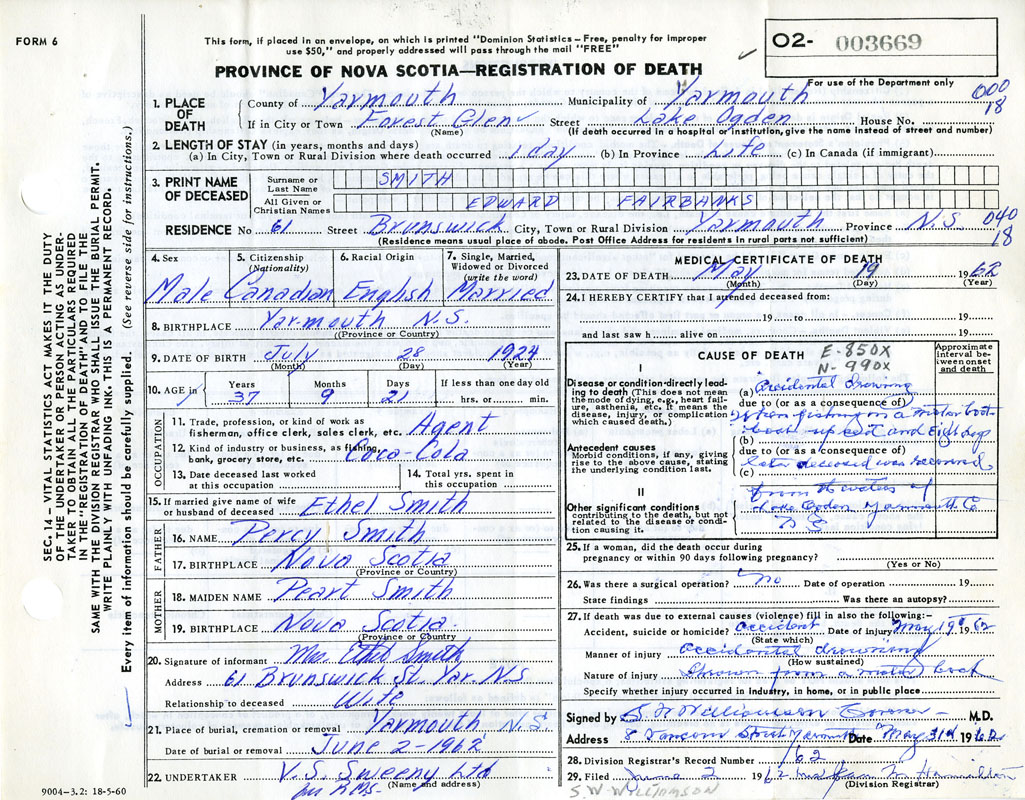 FORM 6
This form, if placed in an envelope, on which is printed "Dominion Statistics – Free, penalty for improper
use $50," and properly addressed will pass through the mail "FREE"
O2- 003669
For use of the Department only
PROVINCE OF NOVA SCOTIA—REGISTRATION OF DEATH
SEC. 14 – VITAL STATISTICS ACT MAKES IT THE DUTY
OF THE UNDERTAKER OR PERSON ACTING AS UNDER-
TAKER TO OBTAIN ALL THE PARTICULARS REQUIRED
IN THE "REGISTRATION OF DEATH" AND TO FILE THE
SAME WITH THE DIVISION REGISTRAR WHO SHALL ISSUE THE BURIAL PERMIT.
WRITE PLAINLY WITH UNFADING INK. THIS IS A PERMANENT RECORD.
Every item of information should be carefully supplied. (See reverse side for instructions.)
1. PLACE OF DEATH
County of Yarmouth Municipality of Yarmouth 000
If in City or Town Forest Glen Street Lake Ogden House No. 18
(Name) (If death occurred in a hospital or institution, give the name instead of street and number)
2. LENGTH OF STAY (in years, months and days)
(a) In City, Town or Rural Division where death occurred 1 day (b) In Province Life (c) In Canada (if immigrant)
3. PRINT NAME OF DECEASED
Surname or Last Name SMITH
All Given or Christian Names EDWARD FAIRBANKS
RESIDENCE No 61 Street Brunswick City, Town or Rural Division Yarmouth Province N.S. 040
(Residence means usual place of abode. Post Office Address for residents in rural parts not sufficient) 18
4. Sex Male
5. Citizenship (Nationality) Canadian
6. Racial Origin English
7. Single, Married, Widowed or Divorced (write the word) Married
8. BIRTHPLACE Yarmouth N.S.
(Province or Country)
9. DATE OF BIRTH July 28 1924
(Month) (Day) (Year)
10. AGE in Years 37 Months 9 Days 21 If less than one day old
hrs. or min.
OCCUPATION
11. Trade, profession, or kind of work as
fisherman, office clerk, sales clerk, etc. Agent
12. Kind of industry or business, as fishing,
bank, grocery store, etc. Coca-Cola
13. Date deceased last worked
at this occupation
14. Total yrs. spent in
this occupation
15. If married give name of wife
or husband of deceased Ethel Smith
FATHER
16. NAME Percy Smith
17. BIRTHPLACE Nova Scotia
(Province or Country)
MOTHER
18. MAIDEN NAME Pearl Smith
19. BIRTHPLACE Nova Scotia
(Province or Country)
20. Signature of informant Mrs. Ethel Smith
Address 61 Brunswick St. Yar. N.S
Relationship to deceased Wife
21. Place of burial, cremation or removal Yarmouth N.S.
Date of burial or removal June 2-1962
22. UNDERTAKER V.S. Sweeny Ltd
(Name and address)
9004–3.2: 18-5-60
MEDICAL CERTIFICATE OF DEATH
23. DATE OF DEATH May 19 1962
(Month) (Day) (Year)
24. I HEREBY CERTIFY that I attended deceased from:
19 to 19
and last saw h alive on 19
CAUSE OF DEATH E-850X
N-990X
Approximate interval between onset and death
I
Disease or condition directly lead-
ing to death (This does not mean
the mode of dying, e.g., heart fail-
ure, asthenia, etc. It means the
disease, injury, or complication
which caused death.)
(a) Accidental drowning
due to (or as a consequence of)
when fishing in a motor boat
Antecedent causes
Morbid conditions, if any, giving
rise to the above cause, stating
the underlying condition last.
(b) boat upset and Eight days
due to (or as a consequence of)
(c) later deceased was recovered
from the waters of
II
Other significant conditions
contributing to the death, but not
related to the disease or condi-
tion causing it.
Lake Ogden Yarmouth Co
N S
25. If a woman, did the death occur during
pregnancy or within 90 days following pregnancy?
(Yes or No)
26. Was there a surgical operation? No Date of operation 19
State findings Was there an autopsy?
27. If death was due to external causes (violence) fill in also the following:-
Accident, suicide or homicide? Accident Date of injury May 19 1962
(State which)
Manner of injury Accidental drowning
(How sustained)
Nature of injury Thrown from a motor boat
Specify whether injury occurred in industry, in home, or in public place
Signed by S. W Williamson Coroner M.D.
Address 8 Vancouver Street Yarmouth Date May 31st 1962
28. Division Registrar's Record Number 62
29. Filed June 2 1962 Hamilton
(Division Registrar)
S.W-WILLIAMSON